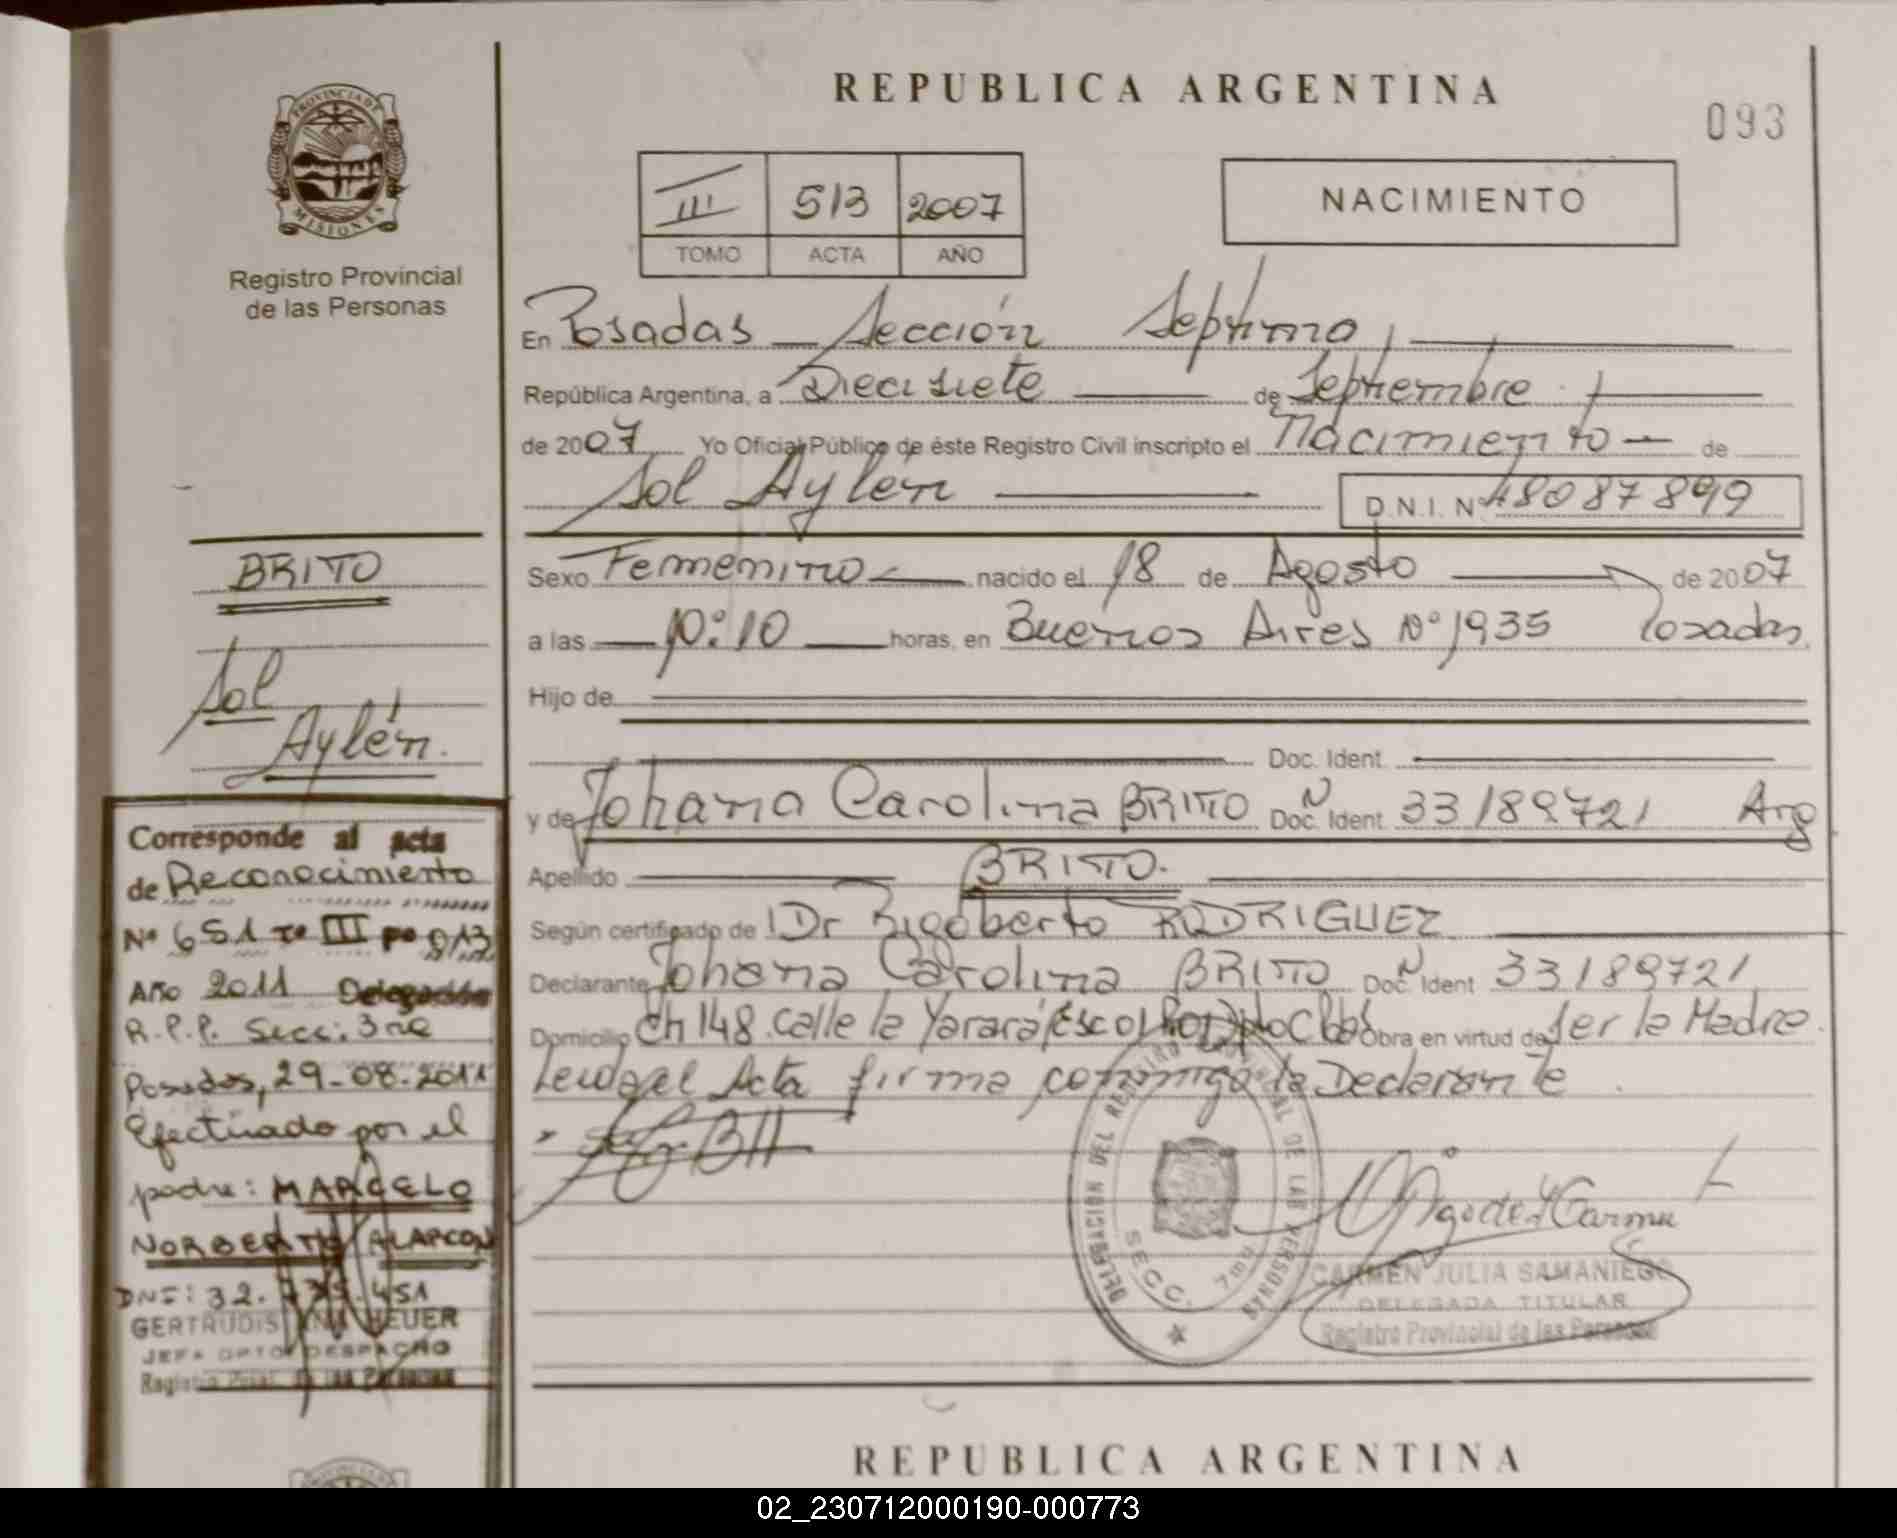 REPUBLICA ARGENTINA
093
III 513 2007
TOMO ACTA AÑO
NACIMIENTO
PROVINCIA DE
MISIONES
Registro Provincial
de las Personas
En Posadas Sección Septima
República Argentina, a Diecisiete de Septiembre
de 2007 Yo Oficial Público de éste Registro Civil inscripto el Nacimiento de
Sol Aylén D.N.I. Nº 48087899
Sexo Femenino nacido el 18 de Agosto de 2007
a las 10:10 horas, en Buenos Aires Nº 1935 Posadas.
Hijo de
Doc. Ident.
y de Johana Carolina BRITO Doc. N Ident 33189721 Arg
Apellido BRITO.
Según certificado de Dr Rigoberto RODRIGUEZ
Declarante Johana Carolina BRITO Doc. N Ident 33189721
Domicilio Ch 148 calle la Yarará Obra en virtud de ser la Madre.
Leida el Acta firma conmigo la Declarante.
DELEGACION DEL REGISTRO PROVINCIAL DE LAS PERSONAS
SECC. 7ma
CARMEN JULIA SAMANIEGO
DELEGADA TITULAR
Registro Provincial de las Personas
BRITO
Sol
Aylén.
Corresponde al acta
de Reconocimiento
Nº 651 Tº III Fº 013
Año 2011 Delegación
R.P.P. Secc: 3ra
Posadas, 29-08-2011
Efectuado por el
padre: MARCELO
NORBERTO ALARCON
DNI: 32. 451
GERTRUDIS ANA HEUER
JEFA DPTO DESPACHO
Registro Pcial. de las Personas
REPUBLICA ARGENTINA
02_230712000190-000773